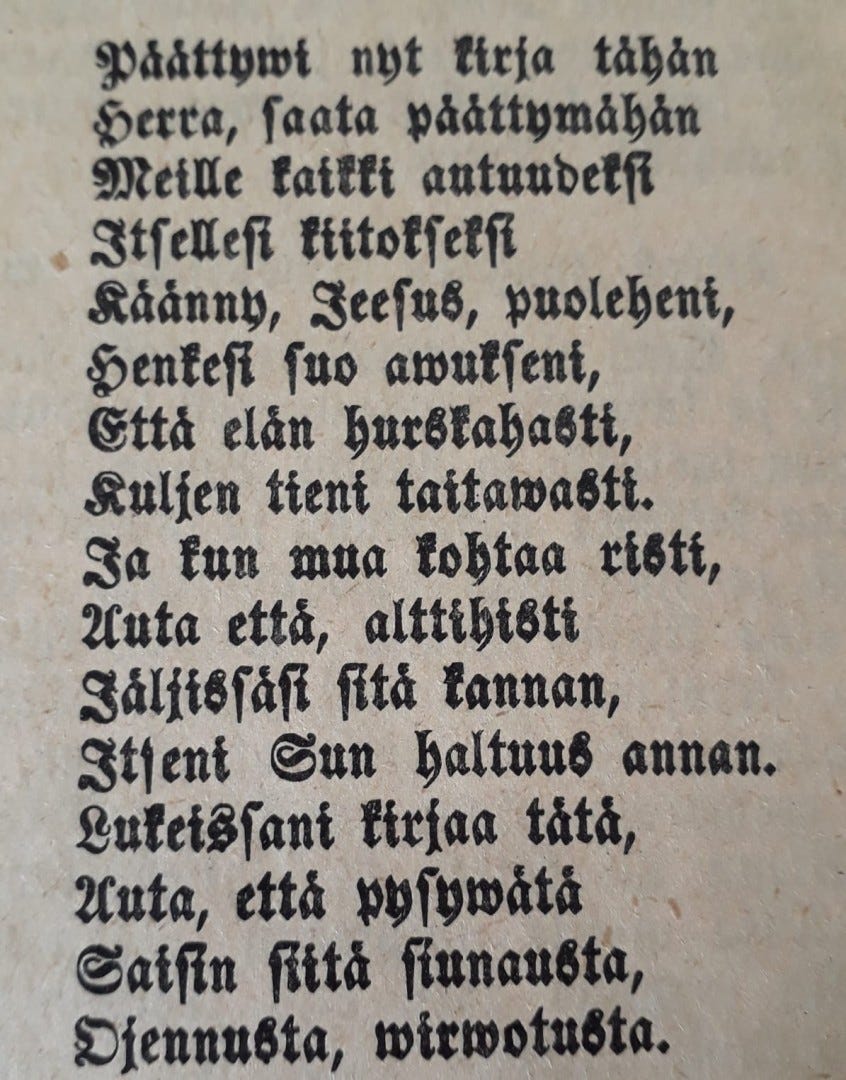 Päättywi nyt kirja tähän
Herra, saata päättymähän
Meille kaikki autuudeksi
Itsellesi kiitokseksi
Käänny, Jeesus, puoleheni,
Henkesi suo awukseni,
Että elän hurskahasti,
Kuljen tieni taitawasti.
Ja kun mua kohtaa risti,
Auta että, alttihisti
Jäljissäsi sitä kannan,
Itseni Sun haltuus annan.
Lukeissani kirjaa tätä,
Auta, että pysywätä
Saisin siitä siunausta,
Ojennusta, wirwotusta.